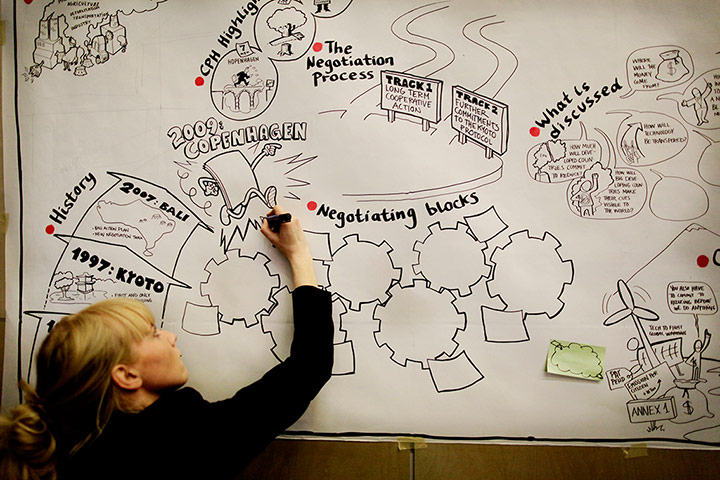 AGRICULTURE
TRANSPORTATION
INDUSTRY
CPH HIGHLIGH
7
HOPENHAGEN
The
Negotiation
Process
TRACK 1
LONG TERM
COOPERATIVE
ACTION
TRACK 2
FURTHER
COMMITMENTS
TO THE KYOTO
PROTOCOL
What is
discussed
WHERE
WILL THE
MONEY
COME
FROM?
HOW WILL
TECHNOLOGY
BE TRANSFERED
HOW MUCH
WILL DEVE-
LOPED COUN-
TRIES COMMIT
TO REDUCE?
HOW WILL
DEVE-
LOPING COUN-
TRIES MAKE
THEIR CUTS
VISIBLE TO
THE WORLD?
2009:
COPENHAGEN
History
2007: BALI
- BALI ACTION PLAN
- NEW NEGOTIATION TRACK
1997: KYOTO
- FIRST AND ONLY
Negotiating blocks
YOU ALSO HAVE
TO COMMIT TO
REDUCING BEFORE
WE DO ANYTHING
TECH TO FIGHT
GLOBAL WARMING
EMISSION PER
CITIZEN
ANNEX 1
$